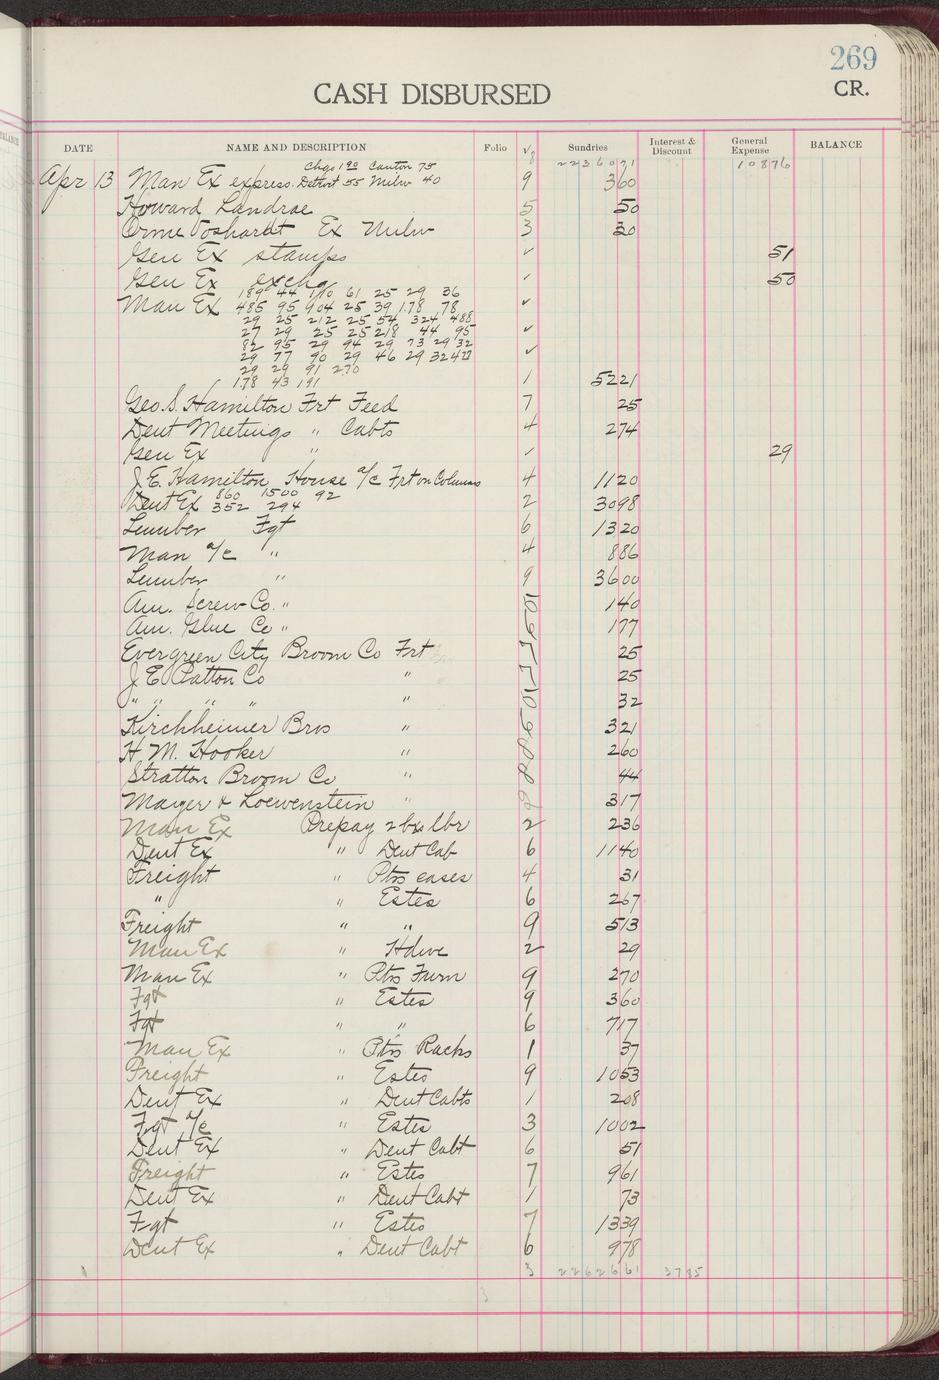 269
CASH DISBURSED CR.
DATE NAME AND DESCRIPTION Folio √ Sundries Interest & Discount General Expense BALANCE
8 2236071 10876
Chgo 190 Canton 75
Apr 13 Man Ex express. Detroit 55 Milw 40 9 360
Howard Landrae 5 50
Orme Foshardt Ex Milw 3 30
Gen Ex stamps √ 51
Gen Ex exchg √ 50
189 44 110 61 25 29 36
Man Ex 485 95 904 25 39 178 78 √
29 25 212 25 54 324 488
27 29 25 25 218 44 95 √
82 95 29 94 29 73 29 32
29 77 90 29 46 29 32 427 √
29 29 91 270
178 43 191 1 5221
Geo. S. Hamilton Frt Feed 7 25
Dent Meetings " Cabts 4 274
Gen Ex " √ 29
J. E. Hamilton House a/c Frt on Columns 4 1120
860 1500 92
Dent Ex 352 294 2 3098
Lumber Fgt 6 1320
Man a/c " 4 886
Lumber " 9 3600
Am. Screw Co. " 10 140
Am. Glue Co " 6 177
Evergreen City Broom Co Frt 5 25
J. E. Patton Co " 5 25
" " " " 10 32
Kirchheimer Bros " 6 321
H. M. Hooker " 8 260
Stratton Broom Co " 8 44
Mayer & Loewenstein " 8 317
Man Ex Prepay 2 bx lbr 2 236
Dent Ex " Dent Cab 6 1140
Freight " Ptrs cases 4 31
" " Estes 6 267
Freight " " 9 513
Man Ex " Hdwe 2 29
Man Ex " Ptrs Furn 9 270
Fgt " Estes 9 360
Fgt " " 6 717
Man Ex " Ptrs Racks 1 37
Freight " Estes 9 1053
Dent Ex " Dent Cabts 1 208
Fgt a/c " Estes 3 1002
Dent Ex " Dent Cabt 6 51
Freight " Estes 7 961
Dent Ex " Dent Cabt 1 73
Fgt " Estes 7 1339
Dent Ex " Dent Cabt 6 978
3 2262661 3785
3